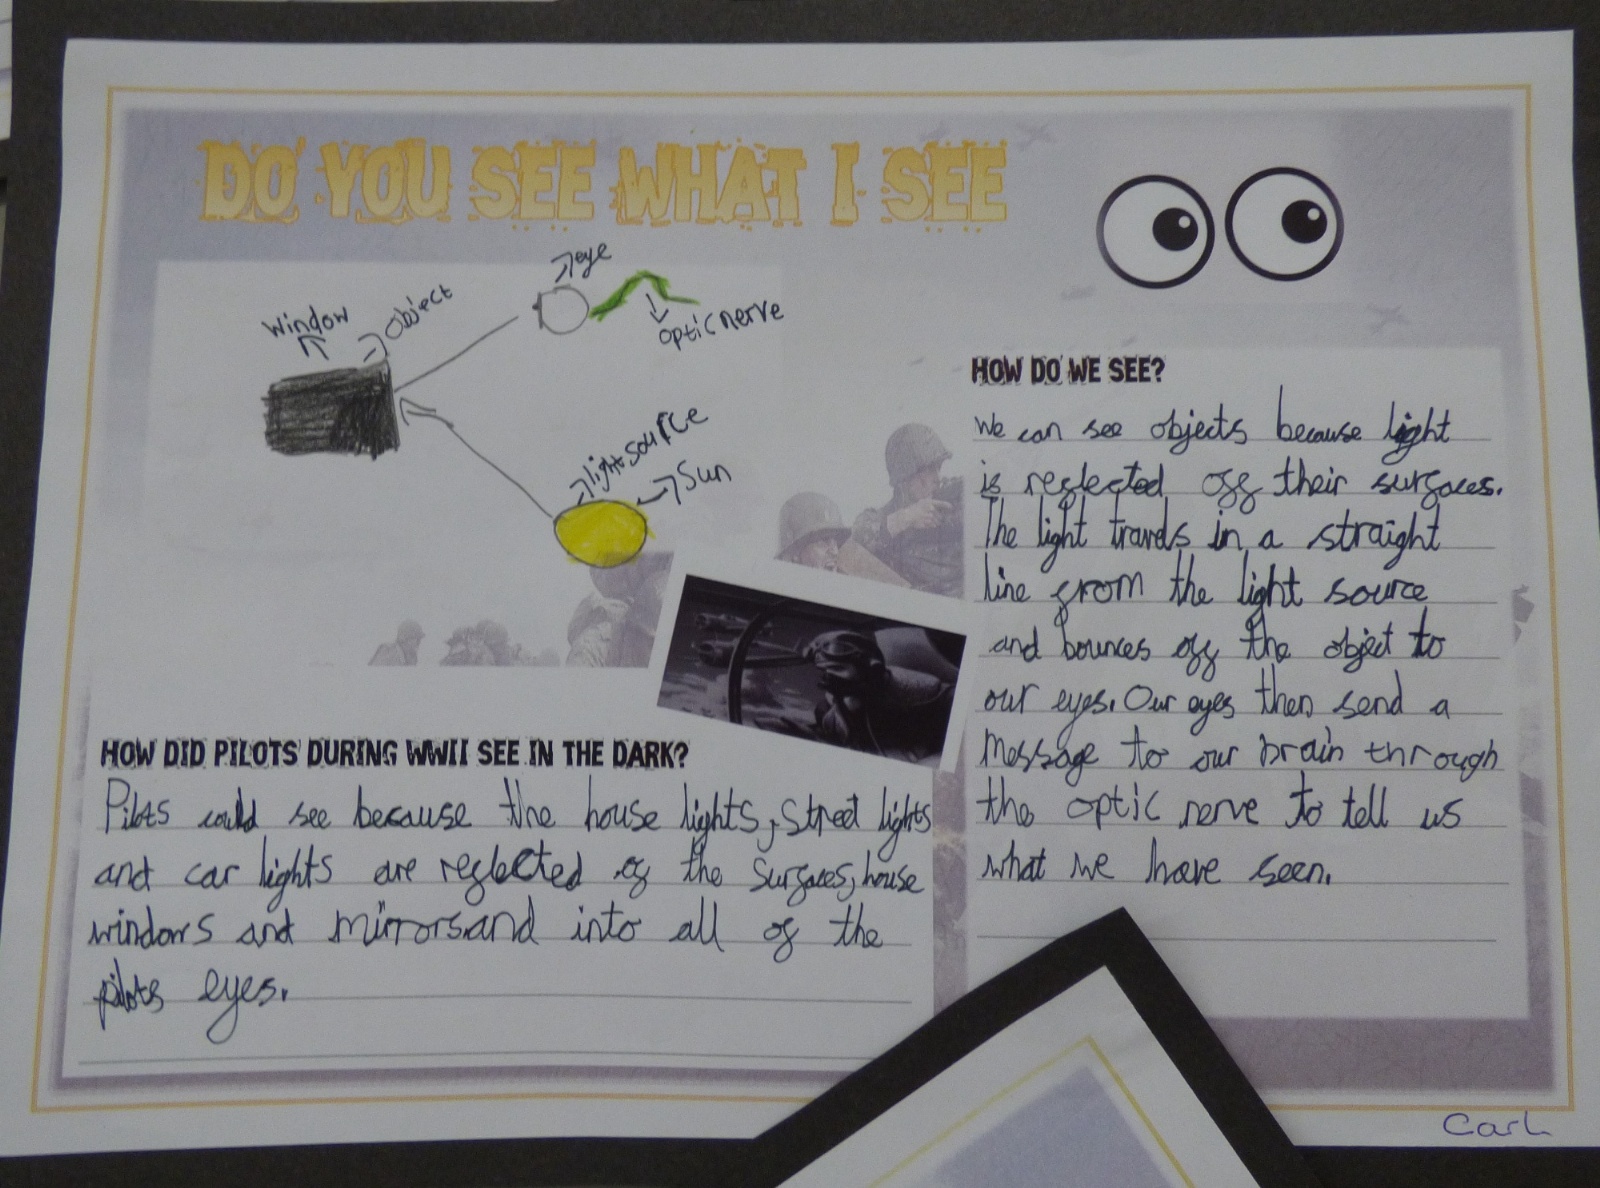 DO YOU SEE WHAT I SEE
eye
Window
Object
optic nerve
light source
Sun
HOW DO WE SEE?
We can see objects because light
is reflected off their surfaces.
The light travels in a straight
line from the light source
and bounces off the object to
our eyes. Our eyes then send a
Message to our brain through
the optic nerve to tell us
what we have seen.
HOW DID PILOTS DURING WWII SEE IN THE DARK?
Pilots could see because the house lights, street lights
and car lights are reflected of the surfaces, house
windows and mirrors and into all of the
pilots eyes.
Carl